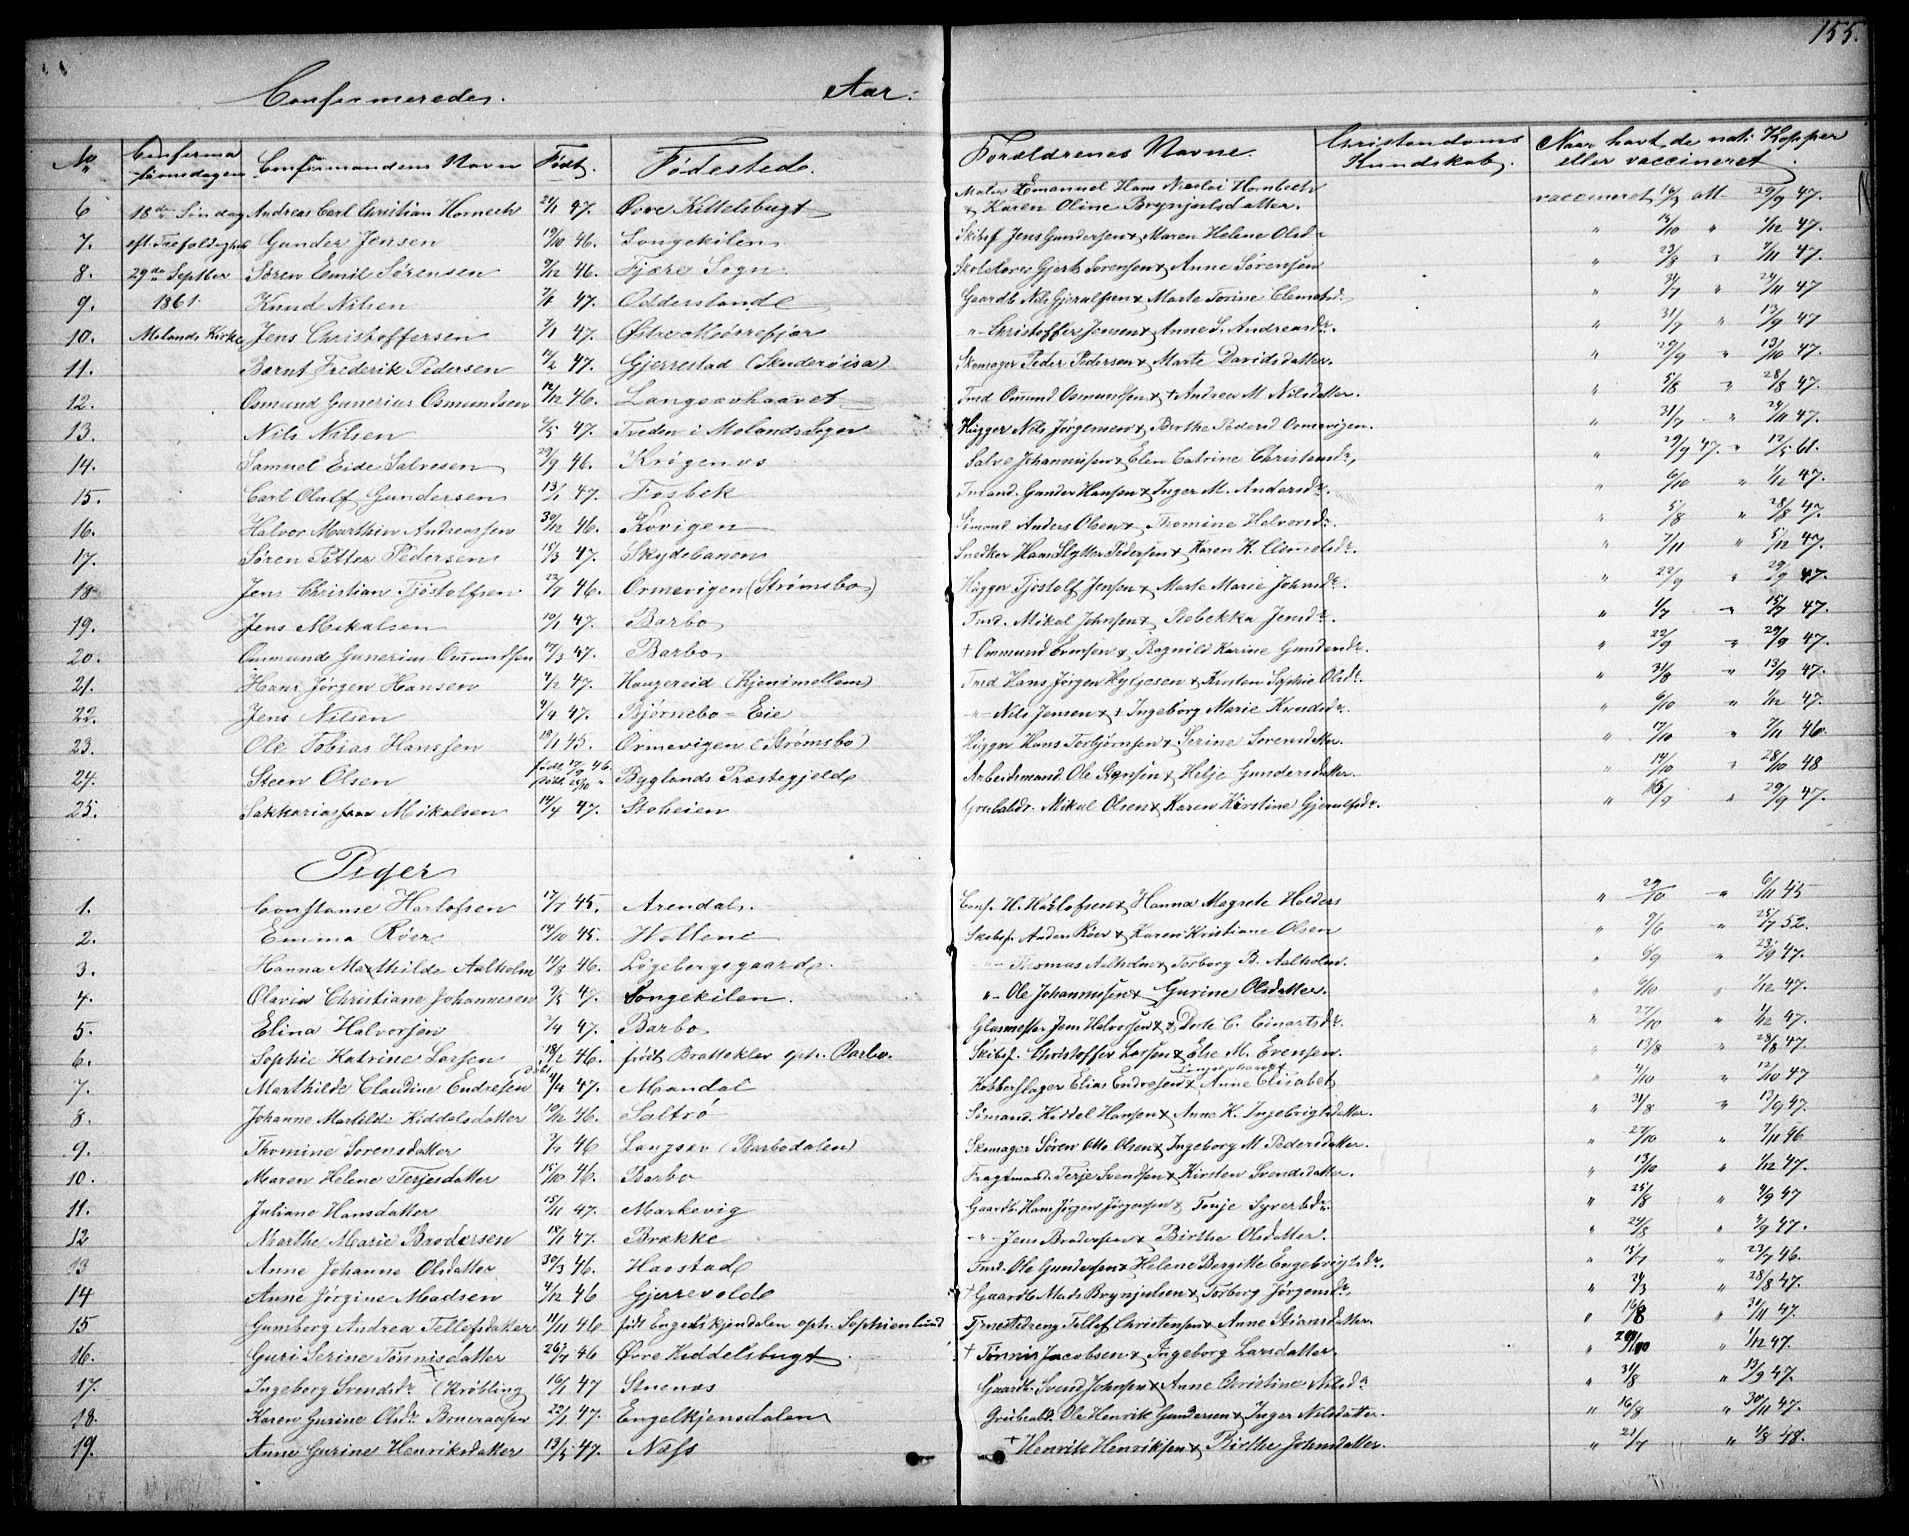 155.
Confirmerede. Aar:
No Confirma Confirmandens Navn Født. Fødested. Forældrenes Navne. Christendoms Naar havt de nat: Kopper
tionsdagen Kundskab. eller vaccineret
6 18de Søndag Andreas Carl Christian Hornbech 47. Øvre Kittelsbugt Maler Emanuel Hans Nicolai Hornbech vaccineret att 29/9 47.
& Karen Oline Brynjulsdatter.
7. eft. Trefoldighed Gunder Jensen 19/10 46. Songekilen Skibsf Jens Gundersen & Maren Helene Olsdr " " 1/12 47.
8. 29de Septber Søren Emil Sørensen 9/12 46. Fjære Sogn Skolelærer Gjert Sørensen & Anne Sørensen " " 47.
9. 1861. Knud Nilsen 47. Odderstand Gaardb. Nils Gjeralfsen & Marte Torine Clemetsd. " " 47
10. Molands Kirke Jens Christoffersen 47. Østre Mørrefjær " Christoffer Jensen & Anne S. Andreasdr. " 31/7 " 13/9 47
11. Bernt Frederik Pedersen 47. Gjerrestad (Skuderøisa) Skomager Peder Pedersen & Marte Davidsdatter. " 29/9 " 13/10 47.
12. Osmund Gunerius Osmundsen 12/12 46. Langsævhaavet Tmd Osmund Osmundsen & + Andrea M. Nilsdatter. " 5/8 " 28/8 47.
13. Nils Nilsen 47. Tveden i Molands Sogn Hugger Nils Jørgensen & Birthe Pedersd Ormevigen. " 31/7 " 47.
14. Samuel Eide Salvesen 29/9 46. Krøgenæs Salve Johannissen & Elen Catrine Christensdr, " 29/9 47. " 12/5 61.
15. Carl Oluf Gundersen 13/1 47. Fosbek Tmand. Gunder Hansen & Inger M. Andersdr. " 6/10 " 1/12 47.
16. Halvor Marthin Andreassen 30/12 46. Kovigen Sømand Anders Olsen & Thomine Halvorsdr. " 5/8 " 28/8 47.
17. Søren Petter Pedersen 15/3 47. Skydebanen Snedker Hans Slytter Pedersen & Karen K. Clemetsdr. " 7/11 " 5/12 47.
18. Jens Christian Tjøstolfsen 46. Ormevigen (Strømsbo) Hugger Tjøstolf Jensen & Marte Marie Johnsdr. " 22/9 " 29/9 47.
19. Jens Mikalsen 10/1 47. Barbo Tmd. Mikal Johnsen & Rebekka Jensdr. " 1/7 " 15/7 47.
20. Ommund Gunerius Omundsen 17/3 47. Barbo + Ommund Evensen & Ragnild Karine Gundersdr. " 22/9 " 29/9 47.
21. Hans Jørgen Hansen 4/2 47. Haugereid (Kjenimellem) Tmd Hans Jørgen Hylgesen & Kirsten Sophie Olsdr. " 31/8 " 13/9 47.
22. Jens Nilsen 4/4 47. Bjørnebo-Eie " Nils Jensen & + Ingeborg Marie Knudsdr. " 6/10 " 1/12 47.
23. Ole Tobias Hanssen 18/1 45. Ormevigen (Strømsbo) Hugger Hans Torbjørnsen & Serine Sørensdatter. " 17/10 " 7/11 46.
24. Steen Olsen født 17/9 46. Byglands Præstegjeld Arbeidsmand Ole Stensen & Helje Gundersdatter. " 14/10 " 28/10 48
25. Sakkarias Mikalsen 14/4 47. Stoheien Grubabdr. Mikal Olsen & Karen Kirstine Gjerulfsdr. " " 29/9 47.
Piger
1. Constanse Harlofsen 17/7 45. Arendal. Cons. H. Harlofsen & Hanna Magrete Holders " 29/10 " 6/11 45
2. Emma Røer 14/10 45. Hollene Skibsf. Anders Røer & Karen Kristiane Olsen " 9/6 " 25/7 52.
3. Hanna Mathilde Aalholm 11/8 46. Løgebergsgaard. " Thomas Aalholm & Torborg B. Aalholm. " 6/9 " 23/9 47.
4. Olavia Christiane Johannesen 9/3 47. Songekilen. " Ole Johannissen & Gurine Olsdatter. " 6/10 " 1/12 47.
5. Elina Halvorsen 7/4 47. Barbo Glasmester Jens Halvorsen & Dorte C. Einartsdr. " 27/10 " 1/12 47.
6. Sophie Katrine Larsen 18/2 46. født Brattekler opdr. Barbo. Skibsf. Christoffer Larsen & Else M. Evensen. " 13/8 " 28/8 47.
7. Marthilde Claudine Endresen 4/4 47. Mandal Kobberslager Elias Endresen & Anne Elisabet " 4/10 " 12/10 47
8. Johanne Martilde Kiddelsdatter 10/12 46. Saltrø Sømand. Kiddel Hansen & Anne K. Ingebrigtsdatter. " 31/8 " 13/9 47.
9. Thomine Sørensdatter 7/7 46 Langsæv (Barbodalen) Skomager Søren Otto Olsen & Ingeborg M. Pedersdatter. " 27/10 " 7/11 46
10. Maren Helene Terjesdatter 15/10 46. Barbo Fragtmand. Terje Svendsen & Kirsten Svendsdatter. " 13/10 " 1/12 47.
11. Juliane Hansdatter 15/11 47. Markevig Gaardb. Hans Jørgen Jørgensen & Tonje Syvertsdr. " 25/8 " 4/9 47
12 Marthe Marie Brodersen 18/1 47. Brække " Jens Brodersen & Birthe Olsdatter. " 24/8 " 4/9 47.
13 Anne Johanne Olsdatter 30/3 46. Havstad Tmd. Ole Gundersen & Helene Bergitte Engebrigtsdr. " 15/7 " 23/7 46.
14 Anne Jørgine Madsen 4/12 46 Gjerrevolde + Gaardb. Mads Brynjulsen & Torborg Jørgensdr. " " 28/8 47.
15 Gumborg Andrea Tellefsdatter 11/11 46. født Engelskjendalen opdr. Sophienlund Tjenestedreng Tellef Christensen & Anne Stiansdatter. " 16/8 " 30/11 47.
16. Guri Serine Tønnisdatter 26/7 46 Øvre Kiddelsbugt + Tønnis Jacobsen & Ingeborg Larsdatter. " " 1/12 47.
17. Ingeborg Svendsdr (Krøbling 16/1 47 Stuenæs Gaardb. Svend Johnsen & Anne Christine Nilsdr " 31/8 " 13/9 47.
18. Karen Gurine Olsdr 22/1 47. Engelkjensdalen Grubeabd. Ole Henrik Gundersen & Inger Nilsdatter. " 16/8 " 30/11 47.
19. Anne Gurine Henriksdatter 13/5 47. Næss + Henrik Henriksen & Birthe Johnsdatter. " 21/7 " 1/8 48.